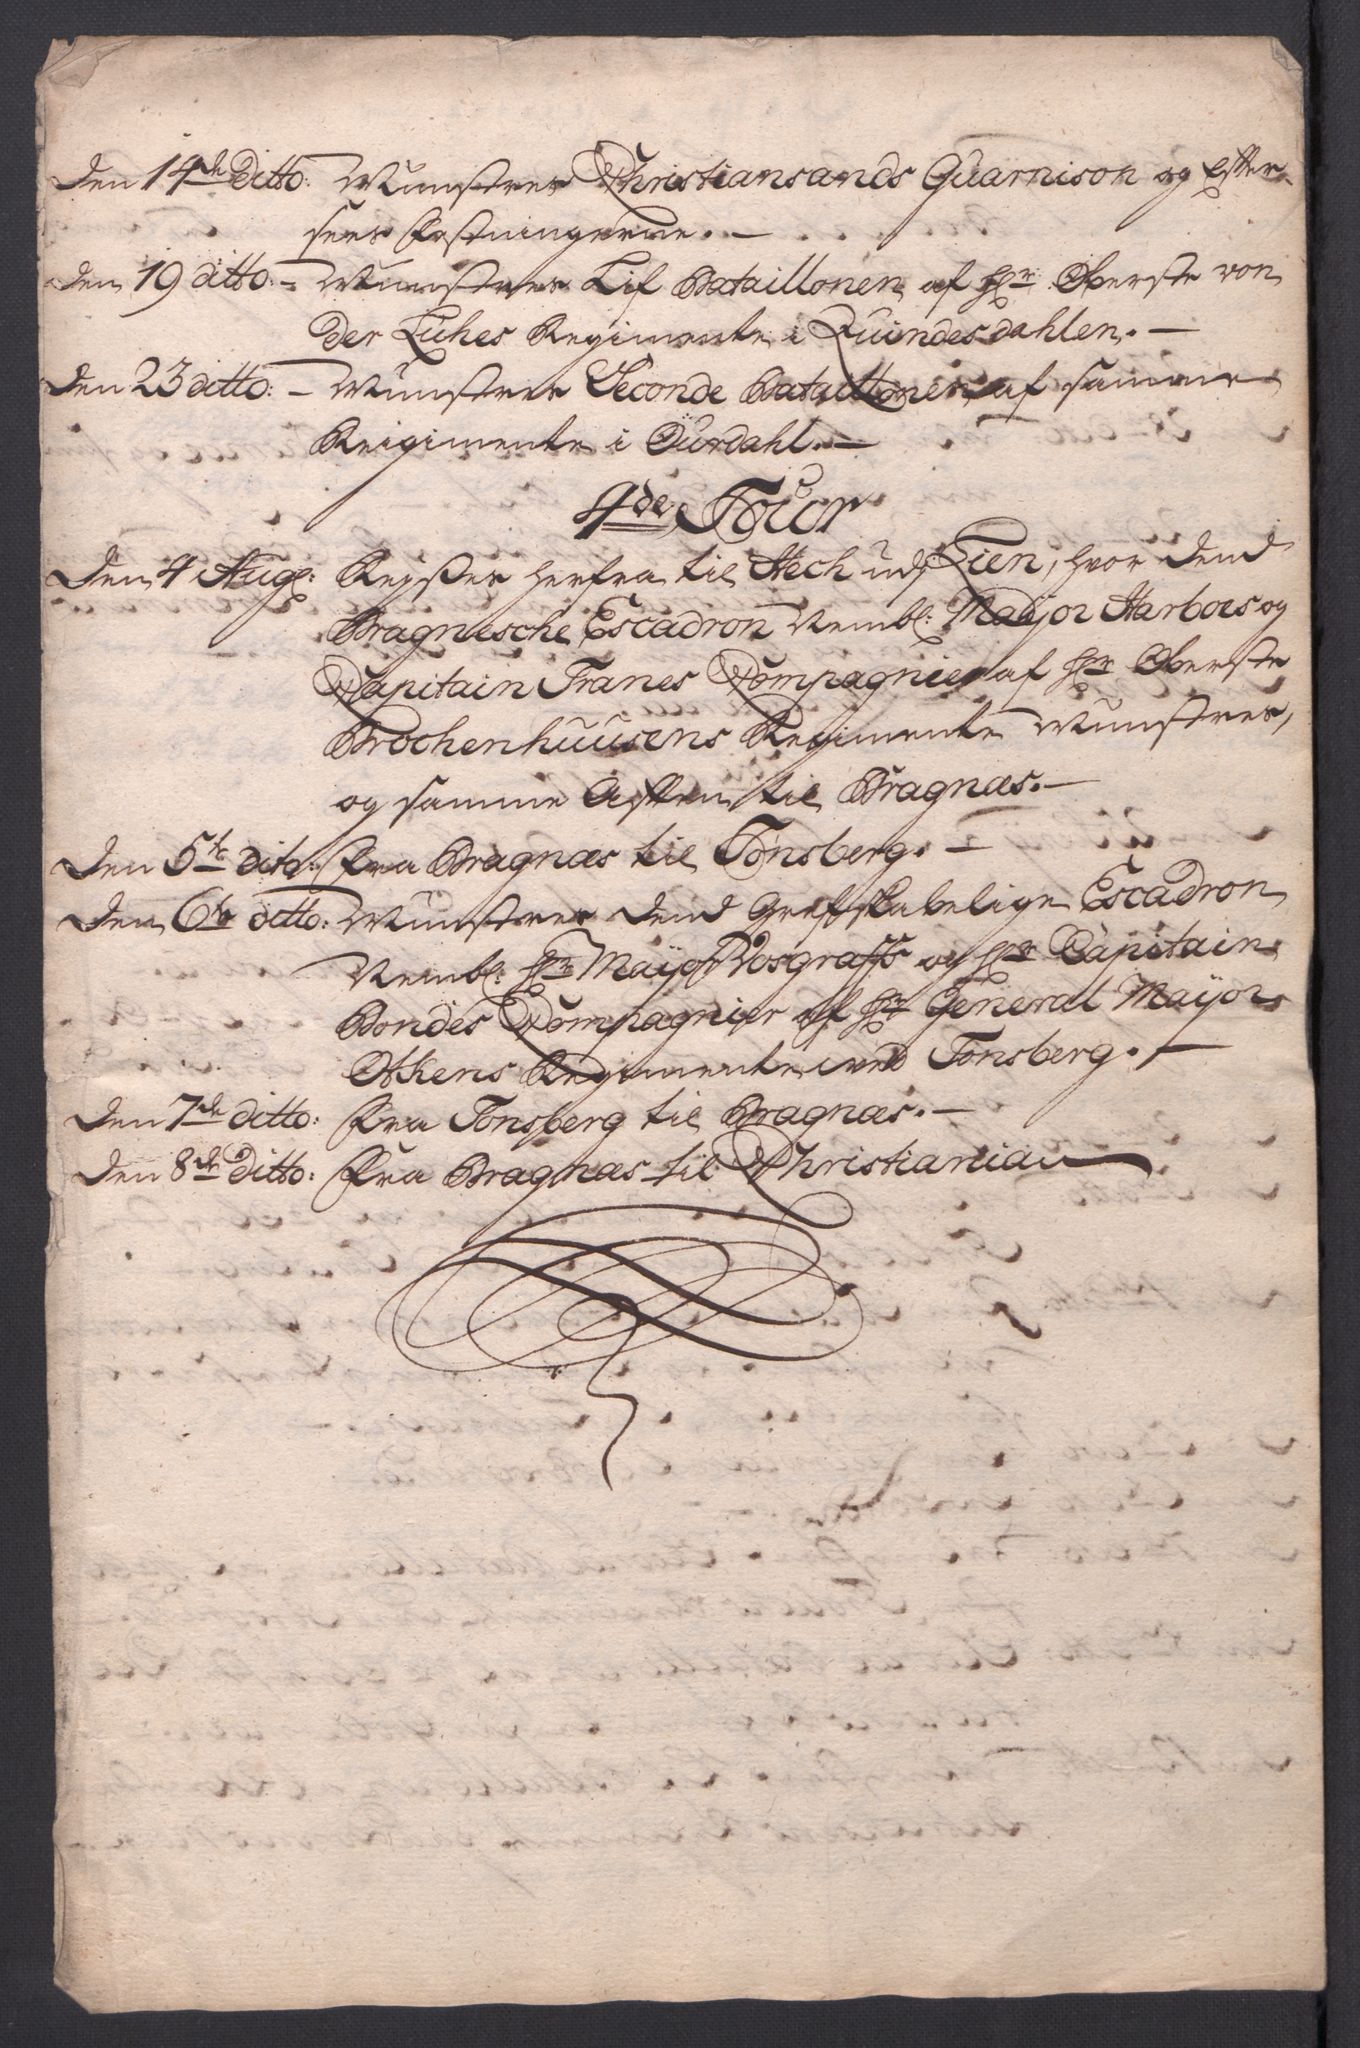 Den 14de Ditto: Munstrer Christiansands Guarnison og Efter-
seer Festningerne. –
Den 19 ditto: – Munstrer Lif Bataillonen af Hr: Oberste von
Der Luhes Regimente i Quindesdahlen. –
Den 23 ditto: – Munstrer Seconde Bataillonen af samme
Reigimente i Ourdahl. –
4de Tour
Den 4 Aug: Rejser herfra til Aech udj Lien, hvor dend
Bragnesche Escadron Nembl: Mayor Harboes og
Capitain Franes Compagnier af Hr Oberste
Brochenhuusens Regimente Munstres,
og samme Aften til Bragnæs. –
Den 5te dito: fra Bragnæs til Tønsberg. –
Den 6te ditto: Munstres dend Grefskabelige Escadron
Nembl: Hr Mayor Rosgraffs og Hr Capitain
Bondes Compagnier af Hr General Mayor
Okens Regimente ved Tonsberg. –
Den 7de ditto: fra Tonsberg til Bragnæs. –
Den 8de Ditto: fra Bragnæs til Christiania